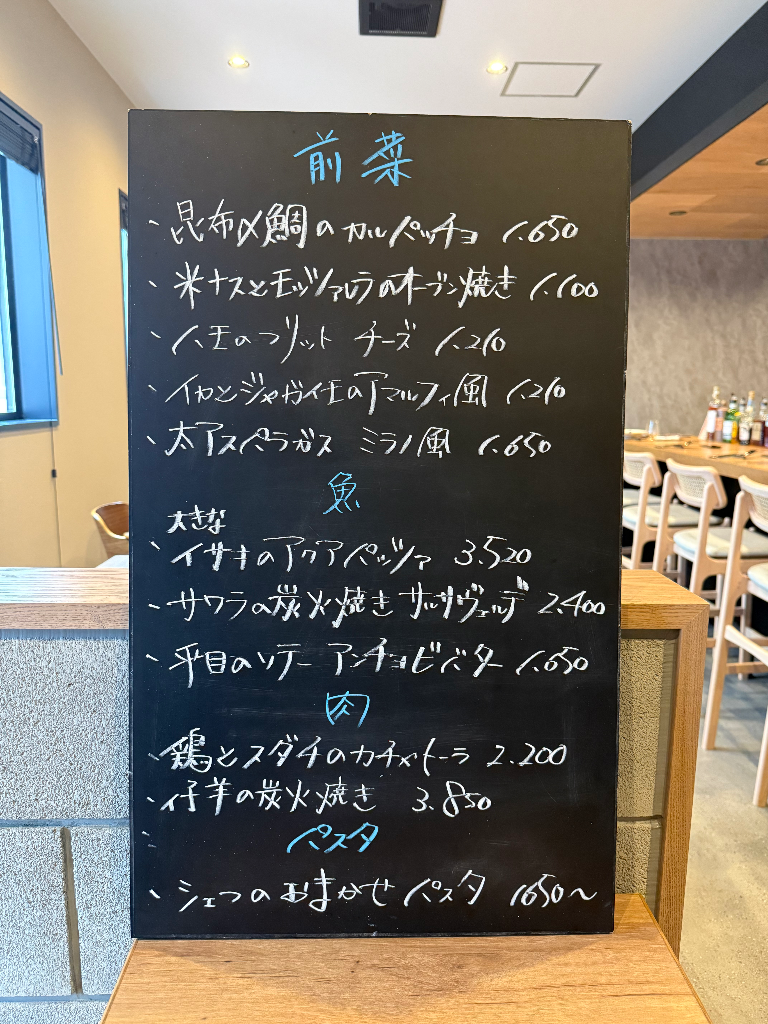 前菜
、昆布〆鯛のカルパッチョ 1.650
、米ナスとモッツァレラのオーブン焼き 1.100
、ハモのフリット チーズ 1.210
、イカとジャガイモのアマルフィ風 1.210
、太アスパラガス ミラノ風 1.650
魚
大きな
、イサキのアクアパッツァ 3.520
、サワラの炭火焼き サルサヴェルデ 2.400
、平目のソテー アンチョビバター 1.650
肉
、鶏とスダチのカチャトーラ 2.200
、仔羊の炭火焼き 3.850
パスタ
、シェフのおまかせパスタ 1650〜